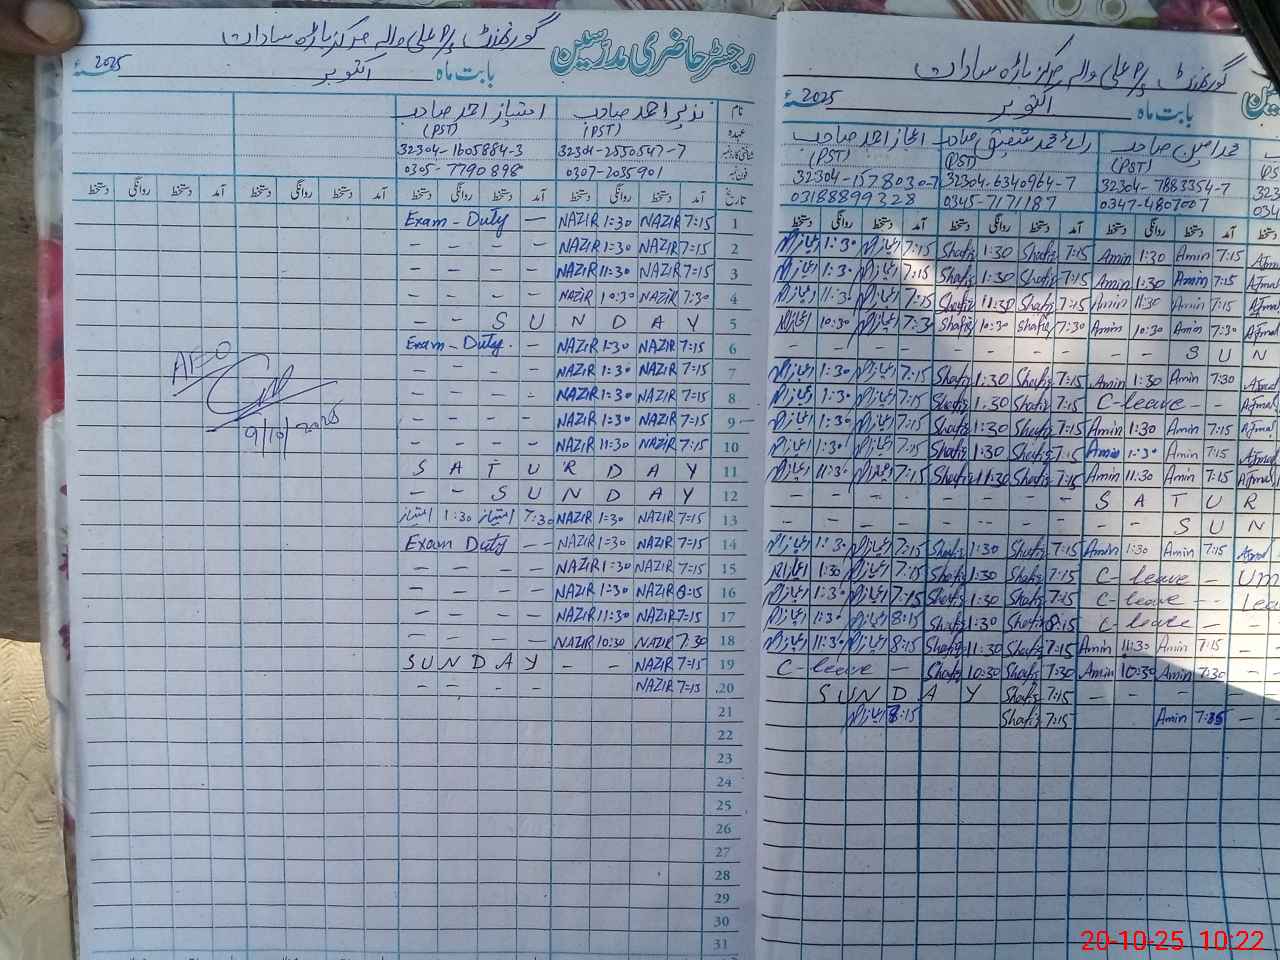 رجسٹر حاضری مدرسین
گورنمنٹ پرائمری والہ مرکز باڑہ سادات
بابت ماہ اکتوبر 2025ء
نام نذیر احمد صاحب امتیاز احمد صاحب
عہدہ (PST) (PST)
شناختی کارڈ نمبر 32304-2550547-7 32304-1605884-3
فون نمبر 0307-2035901 0305-7790898
تاریخ آمد دستخط روانگی دستخط آمد دستخط روانگی دستخط آمد دستخط روانگی دستخط آمد دستخط روانگی دستخط
1 7:15 NAZIR 1:30 NAZIR — Exam-Duty
2 7:15 NAZIR 1:30 NAZIR - - - -
3 7:15 NAZIR 11:30 NAZIR - - - -
4 7:30 NAZIR 10:30 NAZIR - - - -
5 - - S U N D A Y
6 7:15 NAZIR 1:30 NAZIR - Exam-Duty
7 7:15 NAZIR 1:30 NAZIR - - - -
8 7:15 NAZIR 1:30 NAZIR - - - -
9 7:15 NAZIR 1:30 NAZIR - - - -
10 7:15 NAZIR 11:30 NAZIR - - - -
11 S A T U R D A Y
12 - - S U N D A Y
13 7:15 NAZIR 1:30 NAZIR 7:30 امتیاز 1:30 امتیاز
14 7:15 NAZIR 1:30 NAZIR -- Exam Duty
15 7:15 NAZIR 1:30 NAZIR - - - -
16 8:15 NAZIR 1:30 NAZIR - - - -
17 7:15 NAZIR 11:30 NAZIR - - - -
18 7:30 NAZIR 10:30 NAZIR - - - -
19 7:15 NAZIR - - S U N D A Y
20 7:15 NAZIR - - - -
21
22
23
24
25
26
27
28
29
30
31
AEO
9/10/2025
مرکز باڑہ سادات
بابت ماہ اکتوبر 2025ء
محمد امین صاحب رائے محمد شفیق صاحب اعجاز احمد صاحب
(PST) (PST) (PST)
32304-7883354-7 32304-6340964-7 32304-1578030-7
0347-4807007 0345-7171187 03188899328
آمد دستخط روانگی دستخط آمد دستخط روانگی دستخط آمد دستخط روانگی دستخط
7:15 Amin 1:30 Amin 7:15 Shafiq 1:30 Shafiq 7:15 اعجاز 1:30 اعجاز
7:15 Amin 1:30 Amin 7:15 Shafiq 1:30 Shafiq 7:15 اعجاز 1:30 اعجاز
7:15 Amin 11:30 Amin 7:15 Shafiq 11:30 Shafiq 7:15 اعجاز 11:30 اعجاز
7:30 Amin 10:30 Amin 7:30 Shafiq 10:30 Shafiq 7:30 اعجاز 10:30 اعجاز
- - - - - - - - - - S U N
7:30 Amin 1:30 Amin 7:15 Shafiq 1:30 Shafiq 7:15 اعجاز 1:30 اعجاز
C-leave -- 7:15 Shafiq 1:30 Shafiq 7:15 اعجاز 1:30 اعجاز
7:15 Amin 1:30 Amin 7:15 Shafiq 1:30 Shafiq 7:15 اعجاز 1:30 اعجاز
7:15 Amin 1:30 Amin 7:15 Shafiq 1:30 Shafiq 7:15 اعجاز 1:30 اعجاز
7:15 Amin 11:30 Amin 7:15 Shafiq 11:30 Shafiq 7:15 اعجاز 11:30 اعجاز
- - - - - - - - S A T U R
- - - - - - - - - - S U N
7:15 Amin 1:30 Amin 7:15 Shafiq 1:30 Shafiq 7:15 اعجاز 1:30 اعجاز
C-leave - 7:15 Shafiq 1:30 Shafiq 7:15 اعجاز 1:30 اعجاز
C-leave -- 7:15 Shafiq 1:30 Shafiq 7:15 اعجاز 1:30 اعجاز
C-leave - 8:15 Shafiq 1:30 Shafiq 8:15 اعجاز 1:30 اعجاز
7:15 Amin 11:30 Amin 7:15 Shafiq 11:30 Shafiq 8:15 اعجاز 11:30 اعجاز
7:30 Amin 10:30 Amin 7:30 Shafiq 10:30 Shafiq C-leave -
- - - - 7:15 Shafiq S U N D A Y
7:35 Amin 7:15 Shafiq 8:15 اعجاز
20-10-25 10:22